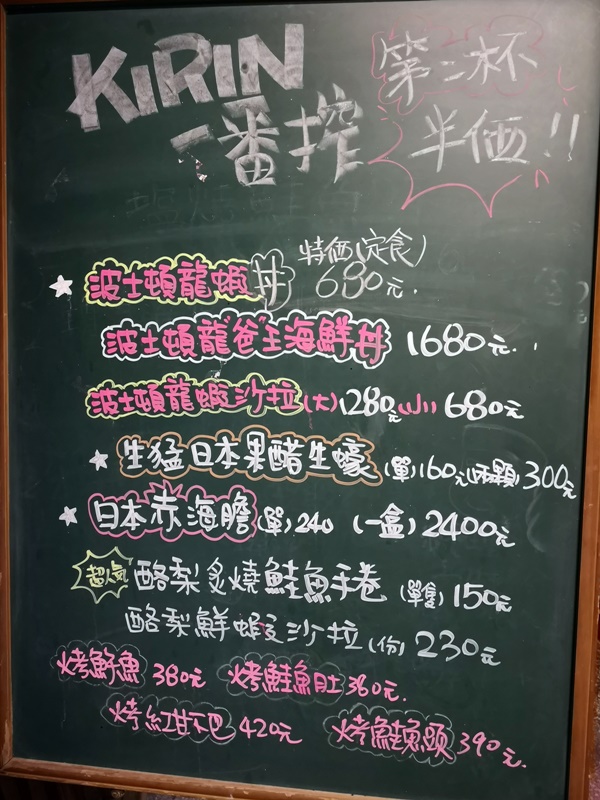 KIRIN 第二杯
一番搾 半価!!
特価(定食)
波士頓龍蝦丼 680元.
波士頓龍爸王海鮮丼 1680元.
波士頓龍蝦沙拉(大)1280元(小)680元
生猛日本果醋生蠔(單)160元(兩顆)300元
日本赤海膽(單)240 (一盒)2400元
超人気 酪梨炙燒鮭魚手卷(單隻)150元
酪梨鮮蝦沙拉(份)230元
烤魚 380元 烤鮭魚肚 360元.
烤紅甘下巴 420元 烤鮭魚頭 390元.